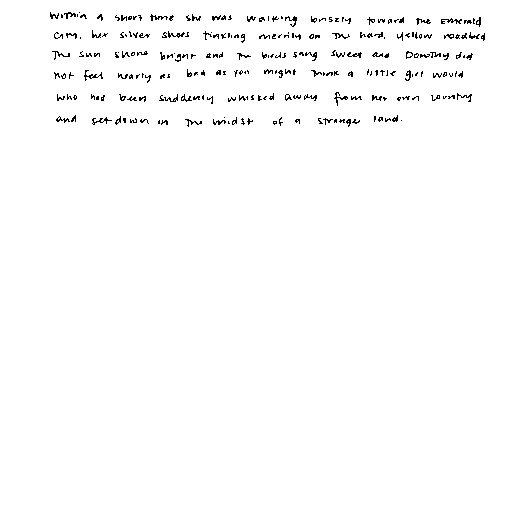 Within a short time she was walking briskly toward the Emerald
City, her silver shoes tinkling merrily on the hard, yellow roadbed
The sun shone bright and the birds sang sweet and Dorothy did
not feel nearly as bad as you might think a little girl would
who had been suddenly whisked away from her own country
and set down in the midst of a strange land.